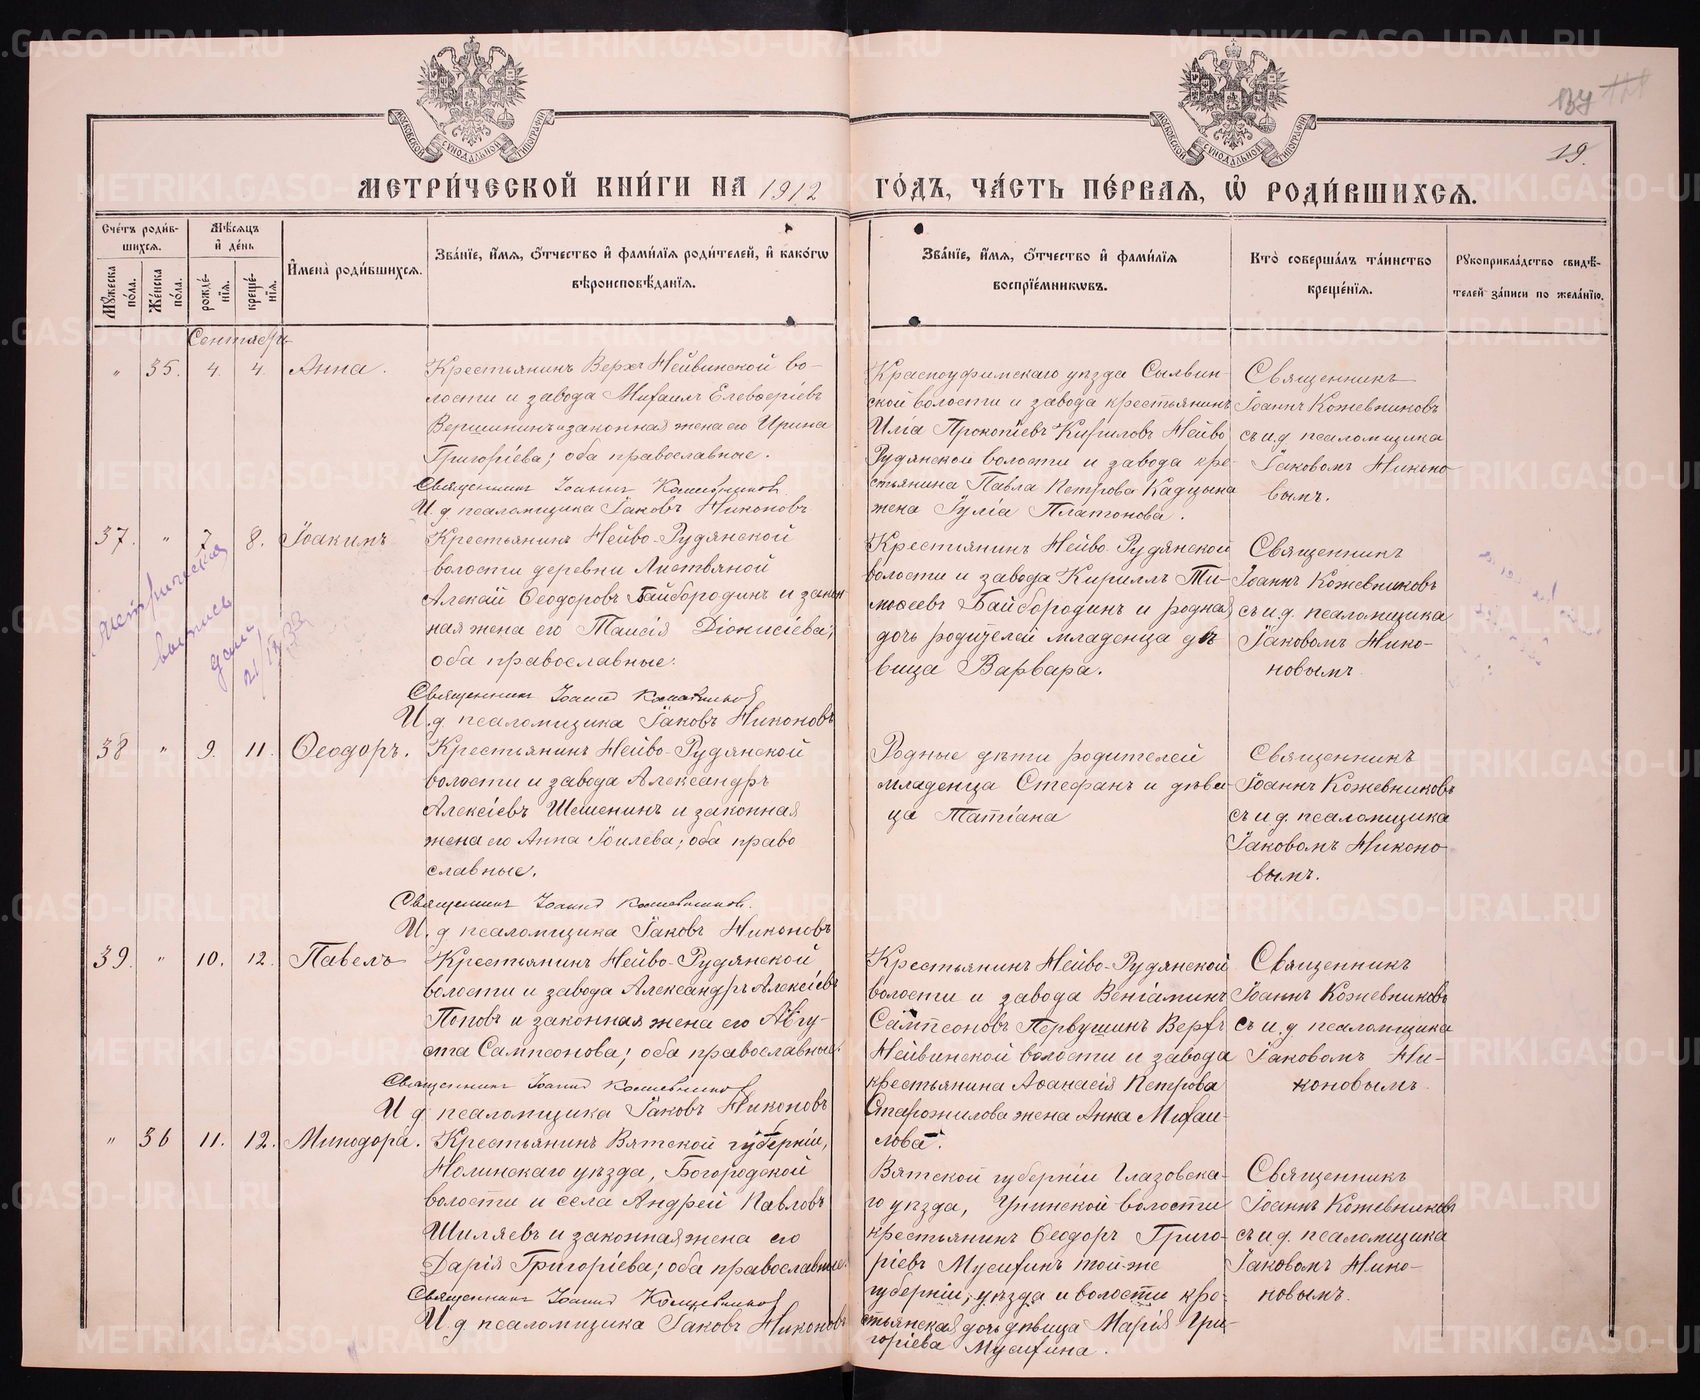 МЕТРИ́ЧЕСКОЙ КНИ́ГИ НА 1912 ГО́ДЪ, ЧА́СТЬ ПЕ́РВАЯ, Ѡ РОДИ́ВШИХСЯ.
137
19.
МОСКОВСКОЙ СѴНОДАЛЬНОЙ ТИПОГРАФІИ
МОСКОВСКОЙ СѴНОДАЛЬНОЙ ТИПОГРАФІИ
Сче́тъ роди́вшихся.
Мѣ́сяцъ и де́нь
Му́жеска по́ла.
Же́нска по́ла.
рожде́нїя.
креще́нїя.
И҆мена̀ роди́вшихся.
Зва́нїе, и҆́мя, ѻ҆́тчество и҆ фами́лїя роди́телей, и҆ како́гѡ
вѣроисповѣ́данїя.
Зва́нїе, и҆́мя, ѻ҆́тчество и҆ фами́лїя
воспрїе́мникѡвъ.
Кто̀ соверша́лъ та́инство
креще́нїя.
Рукоприкла́дство свидѣ́-
телей за́писи по жела́нїю.
Сентябрь
" 35. 4. 4. Анна.
Крестьянинъ Верхъ Нейвинской во-
лости и завода Михаилъ Елевѳеріевъ
Вершининъ и законная жена его Ирина
Григоріева; оба православные.
Священникъ Іоаннъ Кожевниковъ
И. д. псаломщика Іаковъ Никоновъ
Красноуфимскаго уѣзда Сылвин-
ской волости и завода крестьянинъ
Илія Прокопіевъ Кириловъ Нейво
Рудянской волости и завода кре-
стьянина Павла Петрова Кадцына
жена Іулія Платонова.
Священникъ
Іоаннъ Кожевниковъ
съ и. д. псаломщика
Іаковомъ Никоно
вымъ.
37. " 7. 8. Іоакимъ
Крестьянинъ Нейво-Рудянской
волости деревни Листвяной
Алексій Ѳеодоровъ Байбородинъ и закон
ная жена его Таисія Діонисіева;
оба православные.
Священникъ Іоаннъ Кожевниковъ
И. д. псаломщика Іаковъ Никоновъ
Метрическая
выпись
дана
Крестьянинъ Нейво-Рудянской
волости и завода Кириллъ Ти-
моѳеевъ Байбородинъ и родная
дочь родителей младенца дѣ
вица Варвара.
Священникъ
Іоаннъ Кожевниковъ
съ и. д. псаломщика
Іаковомъ Нико-
новымъ
38 " 9. 11. Ѳеодоръ.
Крестьянинъ Нейво-Рудянской
волости и завода Александръ
Алексіевъ Шешенинъ и законная
жена его Анна Іоилева; оба право
славные.
Священникъ Іоаннъ Кожевниковъ.
И. д. псаломщика Іаковъ Никоновъ
Родные дѣти родителей
младенца Стефанъ и дѣви
ца Татіана
Священникъ
Іоаннъ Кожевниковъ
съ и. д. псаломщика
Іаковомъ Никоно
вымъ.
39. " 10. 12. Павелъ
Крестьянинъ Нейво-Рудянской
волости и завода Александръ Алексіевъ
Поповъ и законная жена его Авгу-
ста Сампсонова; оба православные.
Священникъ Іоаннъ Кожевниковъ
И. д. псаломщика Іаковъ Никоновъ
Крестьянинъ Нейво-Рудянской
волости и завода Веніаминъ
Сампсоновъ Первушинъ Верхъ
Нейвинской волости и завода
крестьянина Аѳанасія Петрова
Старожилова жена Анна Михаи-
лова.
Священникъ
Іоаннъ Кожевниковъ
съ и. д. псаломщика
Іаковомъ Ни-
коновымъ.
" 36 11. 12. Минодора.
Крестьянинъ Вятской губерніи,
Нолинскаго уѣзда, Богородской
волости и села Андрей Павловъ
Шиляевъ и законная жена его
Дарія Григоріева; оба православные.
Священникъ Іоаннъ Кожевниковъ
И. д. псаломщика Іаковъ Никоновъ
Вятской губерніи Глазовска-
го уѣзда, Унинской волости
крестьянинъ Ѳеодоръ Григо-
ріевъ Мусихинъ той-же
губерніи, уѣзда и волости кре-
стьянская дочь дѣвица Марія Гри-
горіева Мусихина.
Священникъ
Іоаннъ Кожевниковъ
съ и. д. псаломщика
Іаковомъ Нико-
новымъ.
METRIKI.GASO-URAL.RU